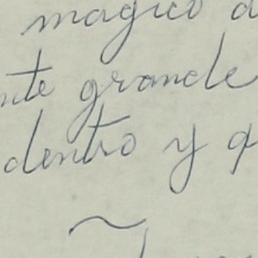 magico a
nte grande
dentro y q